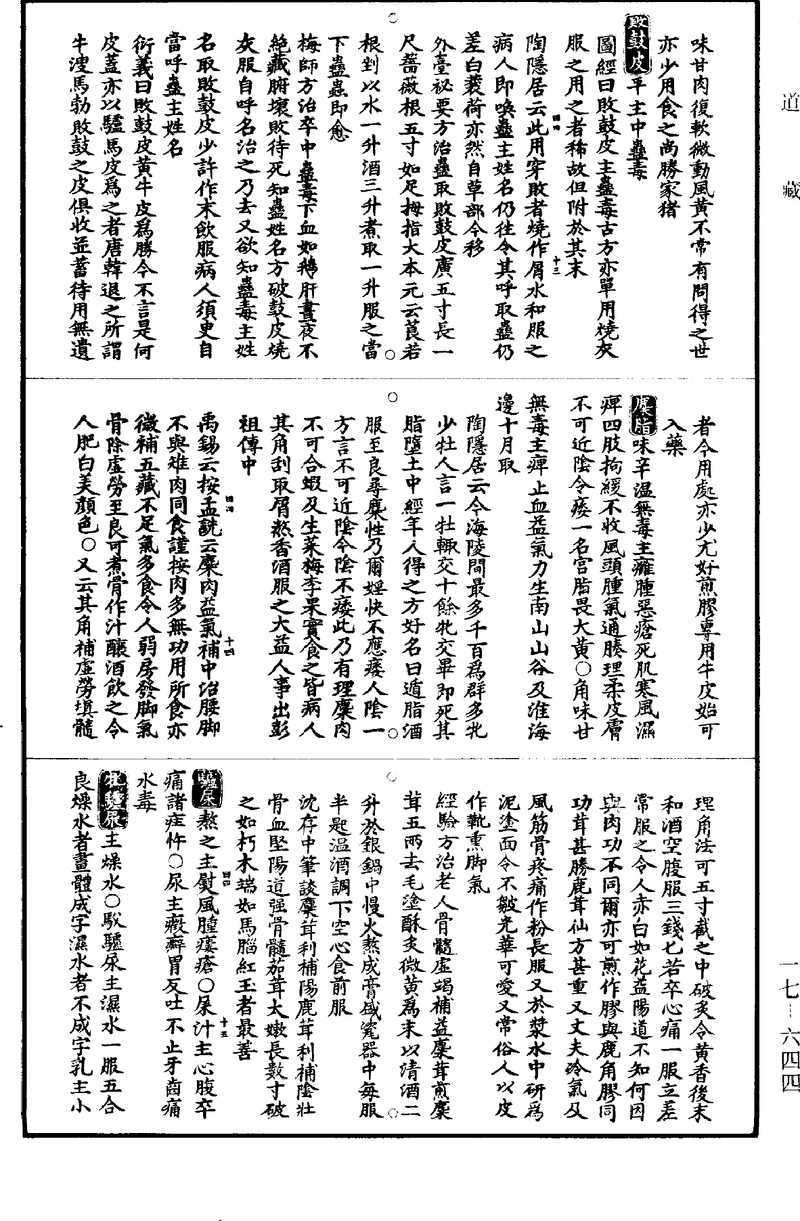 道藏
味甘肉復軟微動風黃不常有問得之世
亦少用食之尚勝家猪
敗鼓皮平主中蠱毒
圖經曰敗鼓皮主蠱毒古方亦單用燒灰
服之用之者稀故但附於其末
陶隱居云此用穿敗者燒作屑水和服之
病人即喚蠱主姓名仍往令其呼取蠱仍
差白蘘荷亦然自草部今移
外臺祕要方治蠱取敗鼓皮廣五寸長一
尺薔薇根五寸如足拇指大本元云莨若
根剉以水一升酒三升煮取一升服之當
下蠱蟲即愈
梅師方治卒中蠱毒下血如鵝肝晝夜不
絕藏腑壞敗待死知蠱姓名方破鼓皮燒
灰服自呼名治之乃去又欲知蠱毒主姓
名取敗鼓皮少許作末飲服病人須臾自
當呼蠱主姓名
衍義曰敗鼓皮黃牛皮爲勝今不言是何
皮蓋亦以驢馬皮爲之者唐韓退之所謂
牛溲馬勃敗鼓之皮俱收並蓄待用無遺
者今用處亦少尤好煎膠專用牛皮始可
入藥
麋脂味辛溫無毒主癰腫惡瘡死肌寒風濕
痺四肢拘緩不收風頭腫氣通腠理柔皮膚
不可近陰令痿一名宮脂畏大黃○角味甘
無毒主痺止血益氣力生南山山谷及淮海
邊十月取
陶隱居云今海陵間最多千百爲群多牝
少牡人言一牡輙交十餘牝交畢即死其
脂墮土中經年人得之方好名曰遁脂酒
服至良尋麋性乃爾婬快不應痿人陰一
方言不可近陰令陰不痿此乃有理麋肉
不可合蝦及生菜梅李果實食之皆病人
其角刮取屑熬香酒服之大益人事出彭
祖傳中
禹錫云按孟詵云麋肉益氣補中治腰脚
不與雉肉同食謹按肉多無功用所食亦
微補五藏不足氣多食令人弱房發脚氣
骨除虛勞至良可煮骨作汁釀酒飲之令
人肥白美顏色○又云其角補虛勞填髓
理角法可五寸截之中破炙令黃香後末
和酒空腹服三錢匕若卒心痛一服立差
常服之令人赤白如花益陽道不知何因
與肉功不同爾亦可煎作膠與鹿角膠同
功茸甚勝鹿茸仙方甚重又丈夫冷氣及
風筋骨疼痛作粉長服又於漿水中研爲
泥塗面令不皺光華可愛又常俗人以皮
作靴熏脚氣
經驗方治老人骨髓虛竭補益麋茸煎麋
茸五兩去毛塗酥炙微黃爲末以清酒二
升於銀鍋中慢火熬成膏盛瓷器中每服
半匙溫酒調下空心食前服
沈存中筆談麋茸利補陽鹿茸利補陰壯
骨血堅陽道强骨髓茄茸太嫩長數寸破
之如朽木端如馬腦紅玉者最善
驢尿熬之主熨風腫瘻瘡○屎汁主心腹卒
痛諸疰忤○尿主癥癖胃反吐不止牙齒痛
水毒
牝驢尿主燥水○駁驢尿主濕水一服五合
良燥水者畫體成字濕水者不成字乳主小
一七—六四四